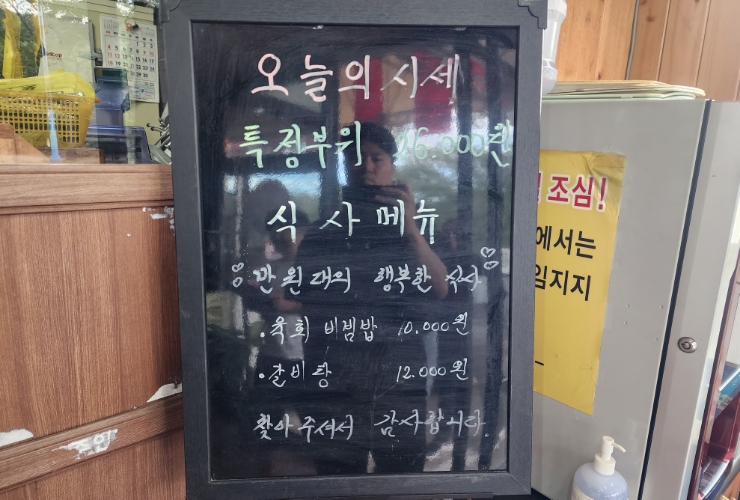 오늘의 시세
특정부위 16.000원
식사메뉴
만원대의 행복한 식사
·육회비빔밥 10.000원
·갈비탕 12.000원
찾아주셔서 감사합니다.
조심!
에서는
임지지